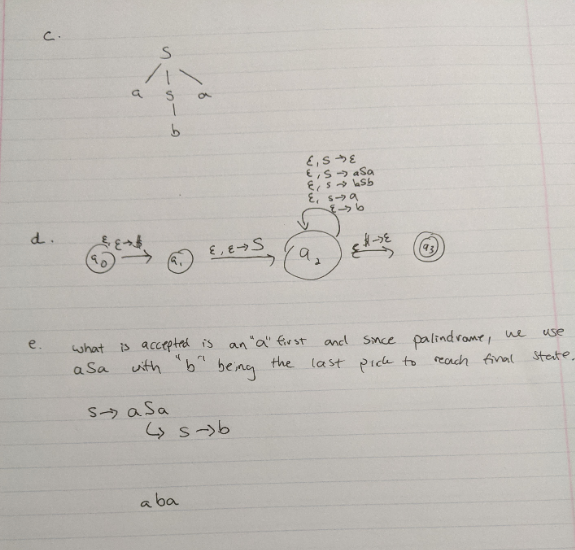 c.
S
a S a
b
ε, S → ε
ε, S → aSa
ε, S → bSb
ε, S → a
ε → b
d.
q0 ε, ε → $ q1 ε, ε → S q2 ε, $ → ε q3
e. what is accepted is an "a" first and since palindrome, we use
aSa with "b" being the last pick to reach final state.
S → aSa
↳ S → b
aba